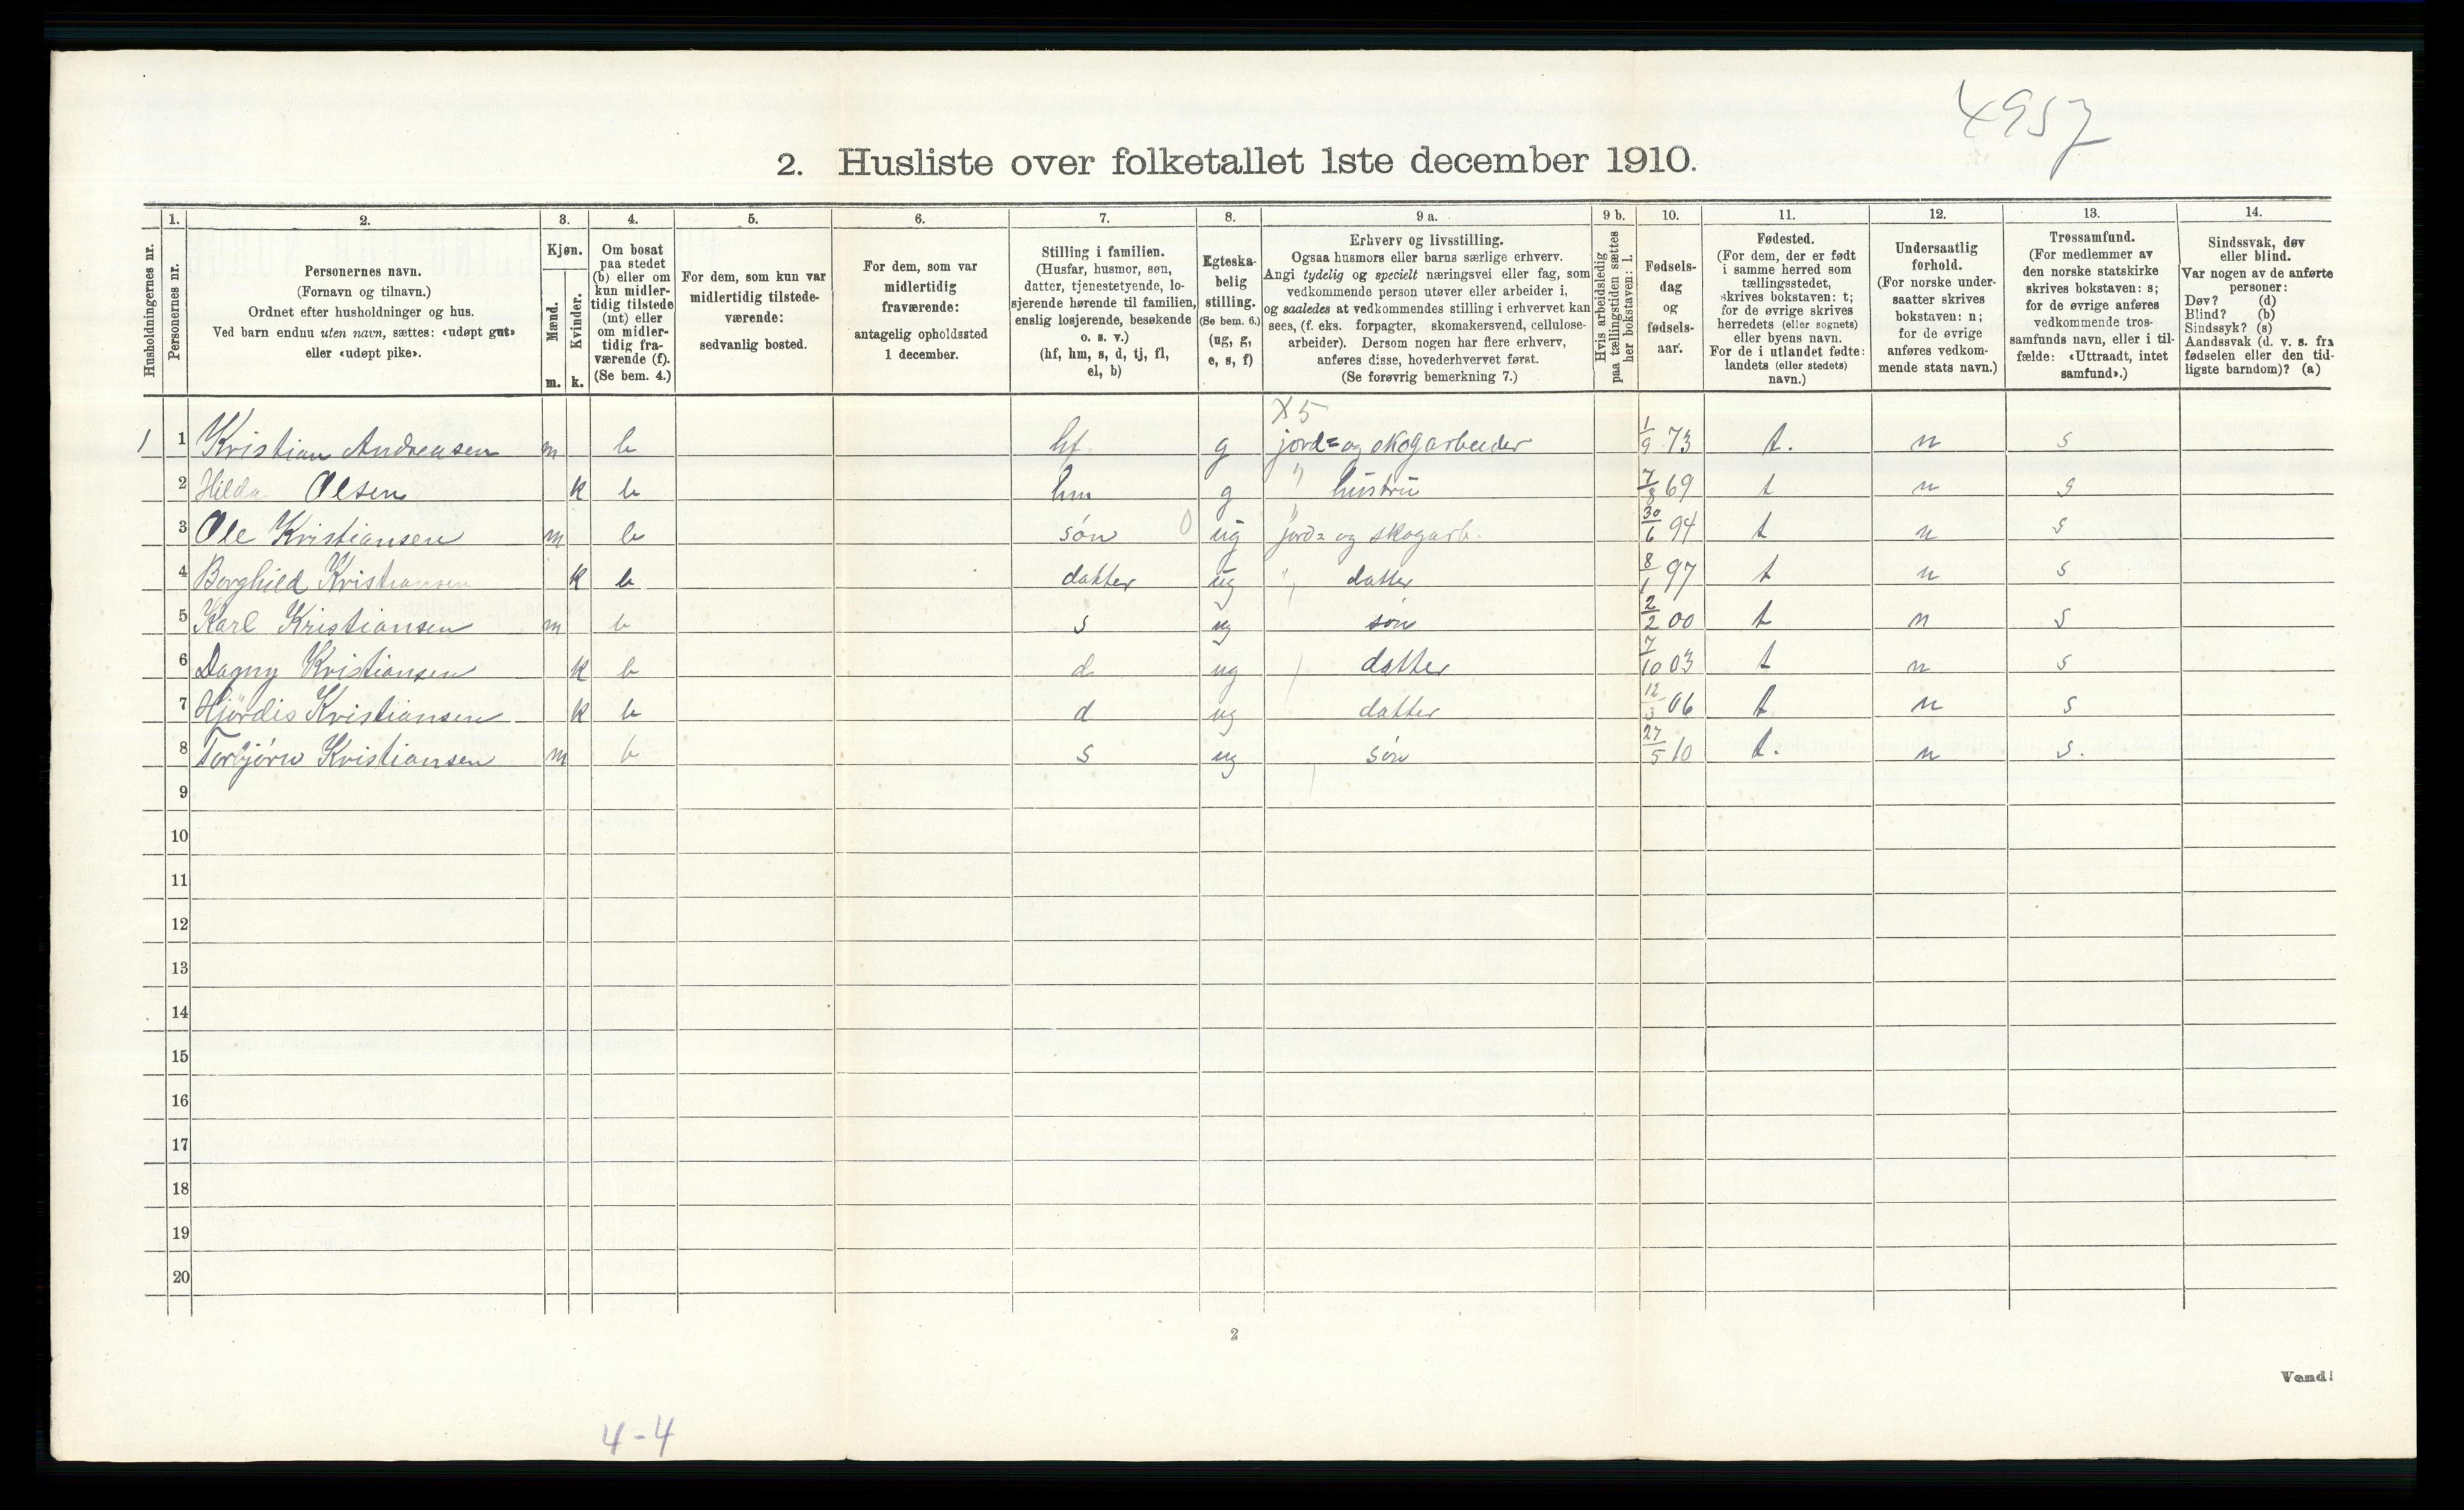 4957
2. Husliste over folketallet 1ste december 1910.
Husholdningernes nr.
1.
Personernes nr.
2.
Personernes navn.
(Fornavn og tilnavn.)
Ordnet efter husholdninger og hus.
Ved barn endnu uten navn, sættes: «udøpt gut»
eller «udøpt pike».
3.
Kjøn.
Mænd.
Kvinder.
m. k.
4.
Om bosat
paa stedet
(b) eller om
kun midler-
tidig tilstede
(mt) eller
om midler-
tidig fra-
værende (f).
(Se bem. 4.)
5.
For dem, som kun var
midlertidig tilstede-
værende:
sedvanlig bosted.
6.
For dem, som var
midlertidig
fraværende:
antagelig opholdssted
1 december.
7.
Stilling i familien.
(Husfar, husmor, søn,
datter, tjenestetyende, lo-
sjerende hørende til familien,
enslig losjerende, besøkende
o. s. v.)
(hf, hm, s, d, tj, fl,
el, b)
8.
Egteska-
belig
stilling.
(Se bem. 6.)
(ug, g,
e, s, f)
9 a.
Erhverv og livsstilling.
Ogsaa husmors eller barns særlige erhverv.
Angi tydelig og specielt næringsvei eller fag, som
vedkommende person utøver eller arbeider i,
og saaledes at vedkommendes stilling i erhvervet kan
sees, (f. eks. forpagter, skomakersvend, cellulose-
arbeider). Dersom nogen har flere erhverv,
anføres disse, hovederhvervet først.
(Se forøvrig bemerkning 7.)
9 b.
Hvis arbeidsledig
paa tællingstiden sættes
her bokstaven: l.
10.
Fødsels-
dag
og
fødsels-
aar.
11.
Fødested.
(For dem, der er født
i samme herred som
tællingsstedet,
skrives bokstaven: t;
for de øvrige skrives
herredets (eller sognets)
eller byens navn.
For de i utlandet fødte:
landets (eller stedets)
navn.)
12.
Undersaatlig
forhold.
(For norske under-
saatter skrives
bokstaven: n;
for de øvrige
anføres vedkom-
mende stats navn.)
13.
Trossamfund.
(For medlemmer av
den norske statskirke
skrives bokstaven: s;
for de øvrige anføres
vedkommende tros-
samfunds navn, eller i til-
fælde: «Uttraadt, intet
samfund».)
14.
Sindssvak, døv
eller blind.
Var nogen av de anførte
personer:
Døv? (d)
Blind? (b)
Sindssyk? (s)
Aandssvak (d. v. s. fra
fødselen eller den tid-
ligste barndom)? (a)
X5
1 1 Kristian Andreasen m b hf. g jord= og skogarbeider 1/9 73 t. n s
2 Hilda Olsen k b hm g " hustru 7/8 69 t n s
3 Ole Kristiansen m b søn 0 ug jord= og skogarb. 30/6 94 t n s
4 Borghild Kristiansen k b datter ug " datter 8/1 97 t n s
5 Karl Kristiansen m b s ug søn 2/2 00 t n s
6 Dagny Kristiansen k b d ug datter 7/10 03 t n s
7 Hjørdis Kristiansen k b d ug datter 12/3 06 t n s
8 Torbjørn Kristiansen m b s ug søn 27/5 10 t. n s.
9
10
11
12
13
14
15
16
17
18
19
20
2
Vend!
4-4